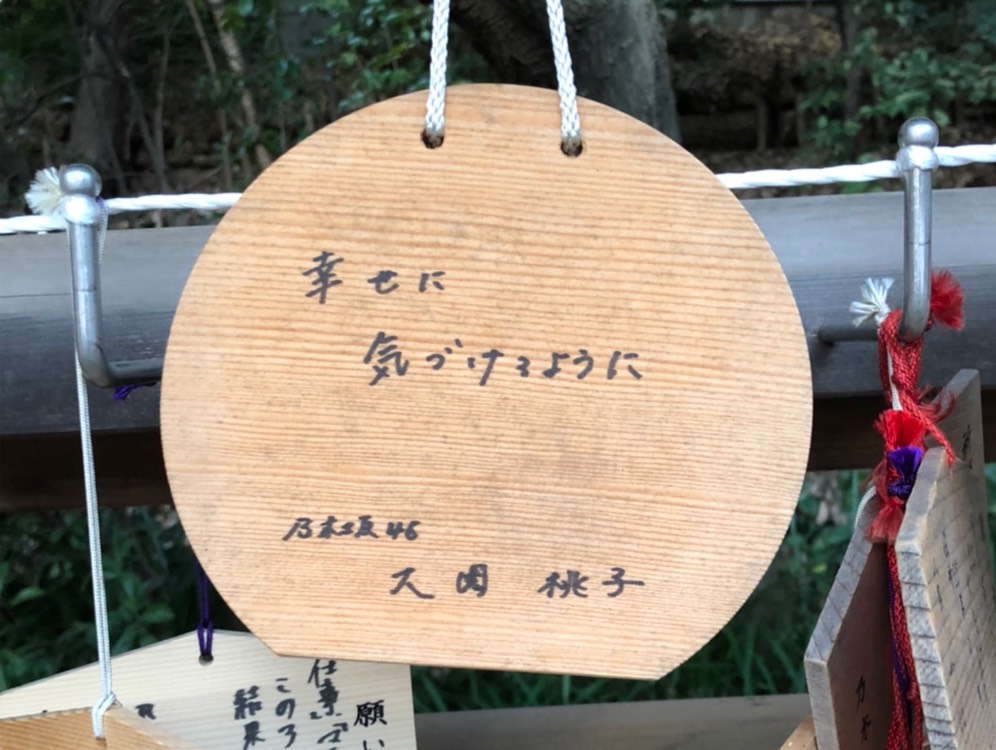 幸せに
気づけるように
乃木坂46
大園 桃子
願い
仕事
このろ
結果